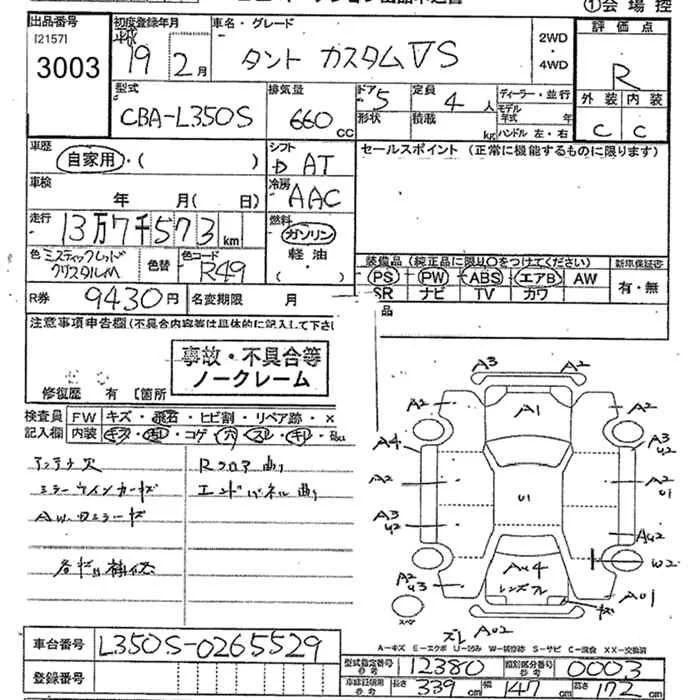 ①会場控
出品番号
[2157]
3003
初度登録年月
平成
19 2月
車名・グレード
タント カスタム VS
2WD
・
4WD
評価点
R
外装 内装
C C
型式
CBA-L350S
排気量
660 CC
ドア 5
形状
定員 4 人
積載 kg
ディーラー・並行
モデル年式 年
ハンドル 左・右
車歴
自家用・( )
シフト
D AT
セールスポイント (正常に機能するものに限ります)
車検
年 月( 日)
冷房
AAC
走行
13万7千573 km
燃料
ガソリン
軽油
( ・ )
色 ミスティックレッド
クリスタルM
色替
色コード
R49
装備品 (純正品に限り○をつけてください)
PS PW ABS エアB AW
SR ナビ TV カワ
新車保証書
有・無
R券 9430円
名変期限 月
品
注意事項申告欄(不具合内容等は具体的に記入して下さい
事故・不具合等
ノークレーム
修復歴 有 [箇所
検査員 FW キズ・飛石・ヒビ割・リペア跡・×
記入欄 内装 キズ・汚レ・コゲ・穴・スレ・キレ・
アンテナ欠
ミラーウインカーキズ
Rフロア曲り
エンドパネル曲り
A3 A2
A2 A1 A2
A4 A3 U2
A2 U1 A2 U1
A3 U2 AU2
W2
A2 U3 AU4 A01
レンズワレ
スペア
ズレ A02
A-キズ E-エクボ U-凹み W-補修跡 S-サビ C-腐食 XX-交換済
車台番号 L350S-0265529
登録番号
型式指定番号 参考 12380
類別区分番号 参考 0003
車庫証明用 参考 長さ 339 cm 幅 147 cm 高さ 172 cm